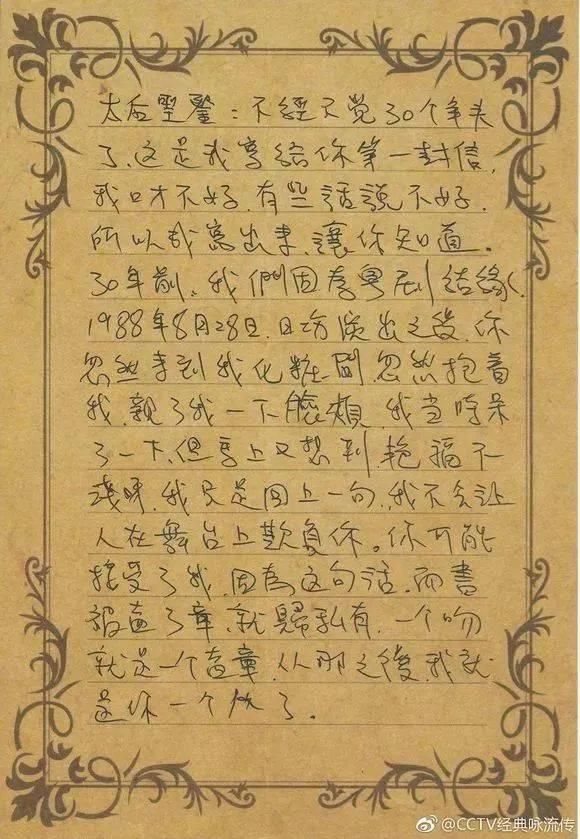 太后聖鑒：不經不覚30个年头
了,这是我寫给你第一封信,
我口才不好,有些话說不好,
所以我寫出來,讓你知道。
30年前,我們因為粤剧结缘,
1988年8月28日,日场演出之後,你
忽然来到我化粧間,忽然抱着
我,親了我一下臉頰,我当時呆
了一下,但馬上又想到,艳福不
淺呀,我只是回上一句,我不会让
人在舞台上欺負你。你可能
接受了我,因為这句话,而書
被盖了章,就歸私有,一个吻
就是一个盖章,从那之後,我就
是你一个人了。
@CCTV经典咏流传